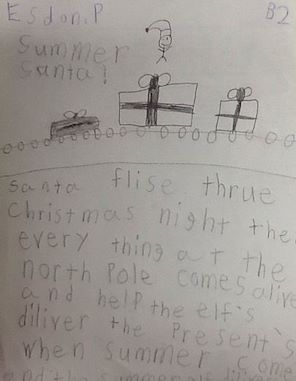 Esdon.P B2
Summer
Santa!
santa flise thrue
Christmas night the
every thing at the
north Pole comes alive
and help the elf's
diliver the Present's
when summer come